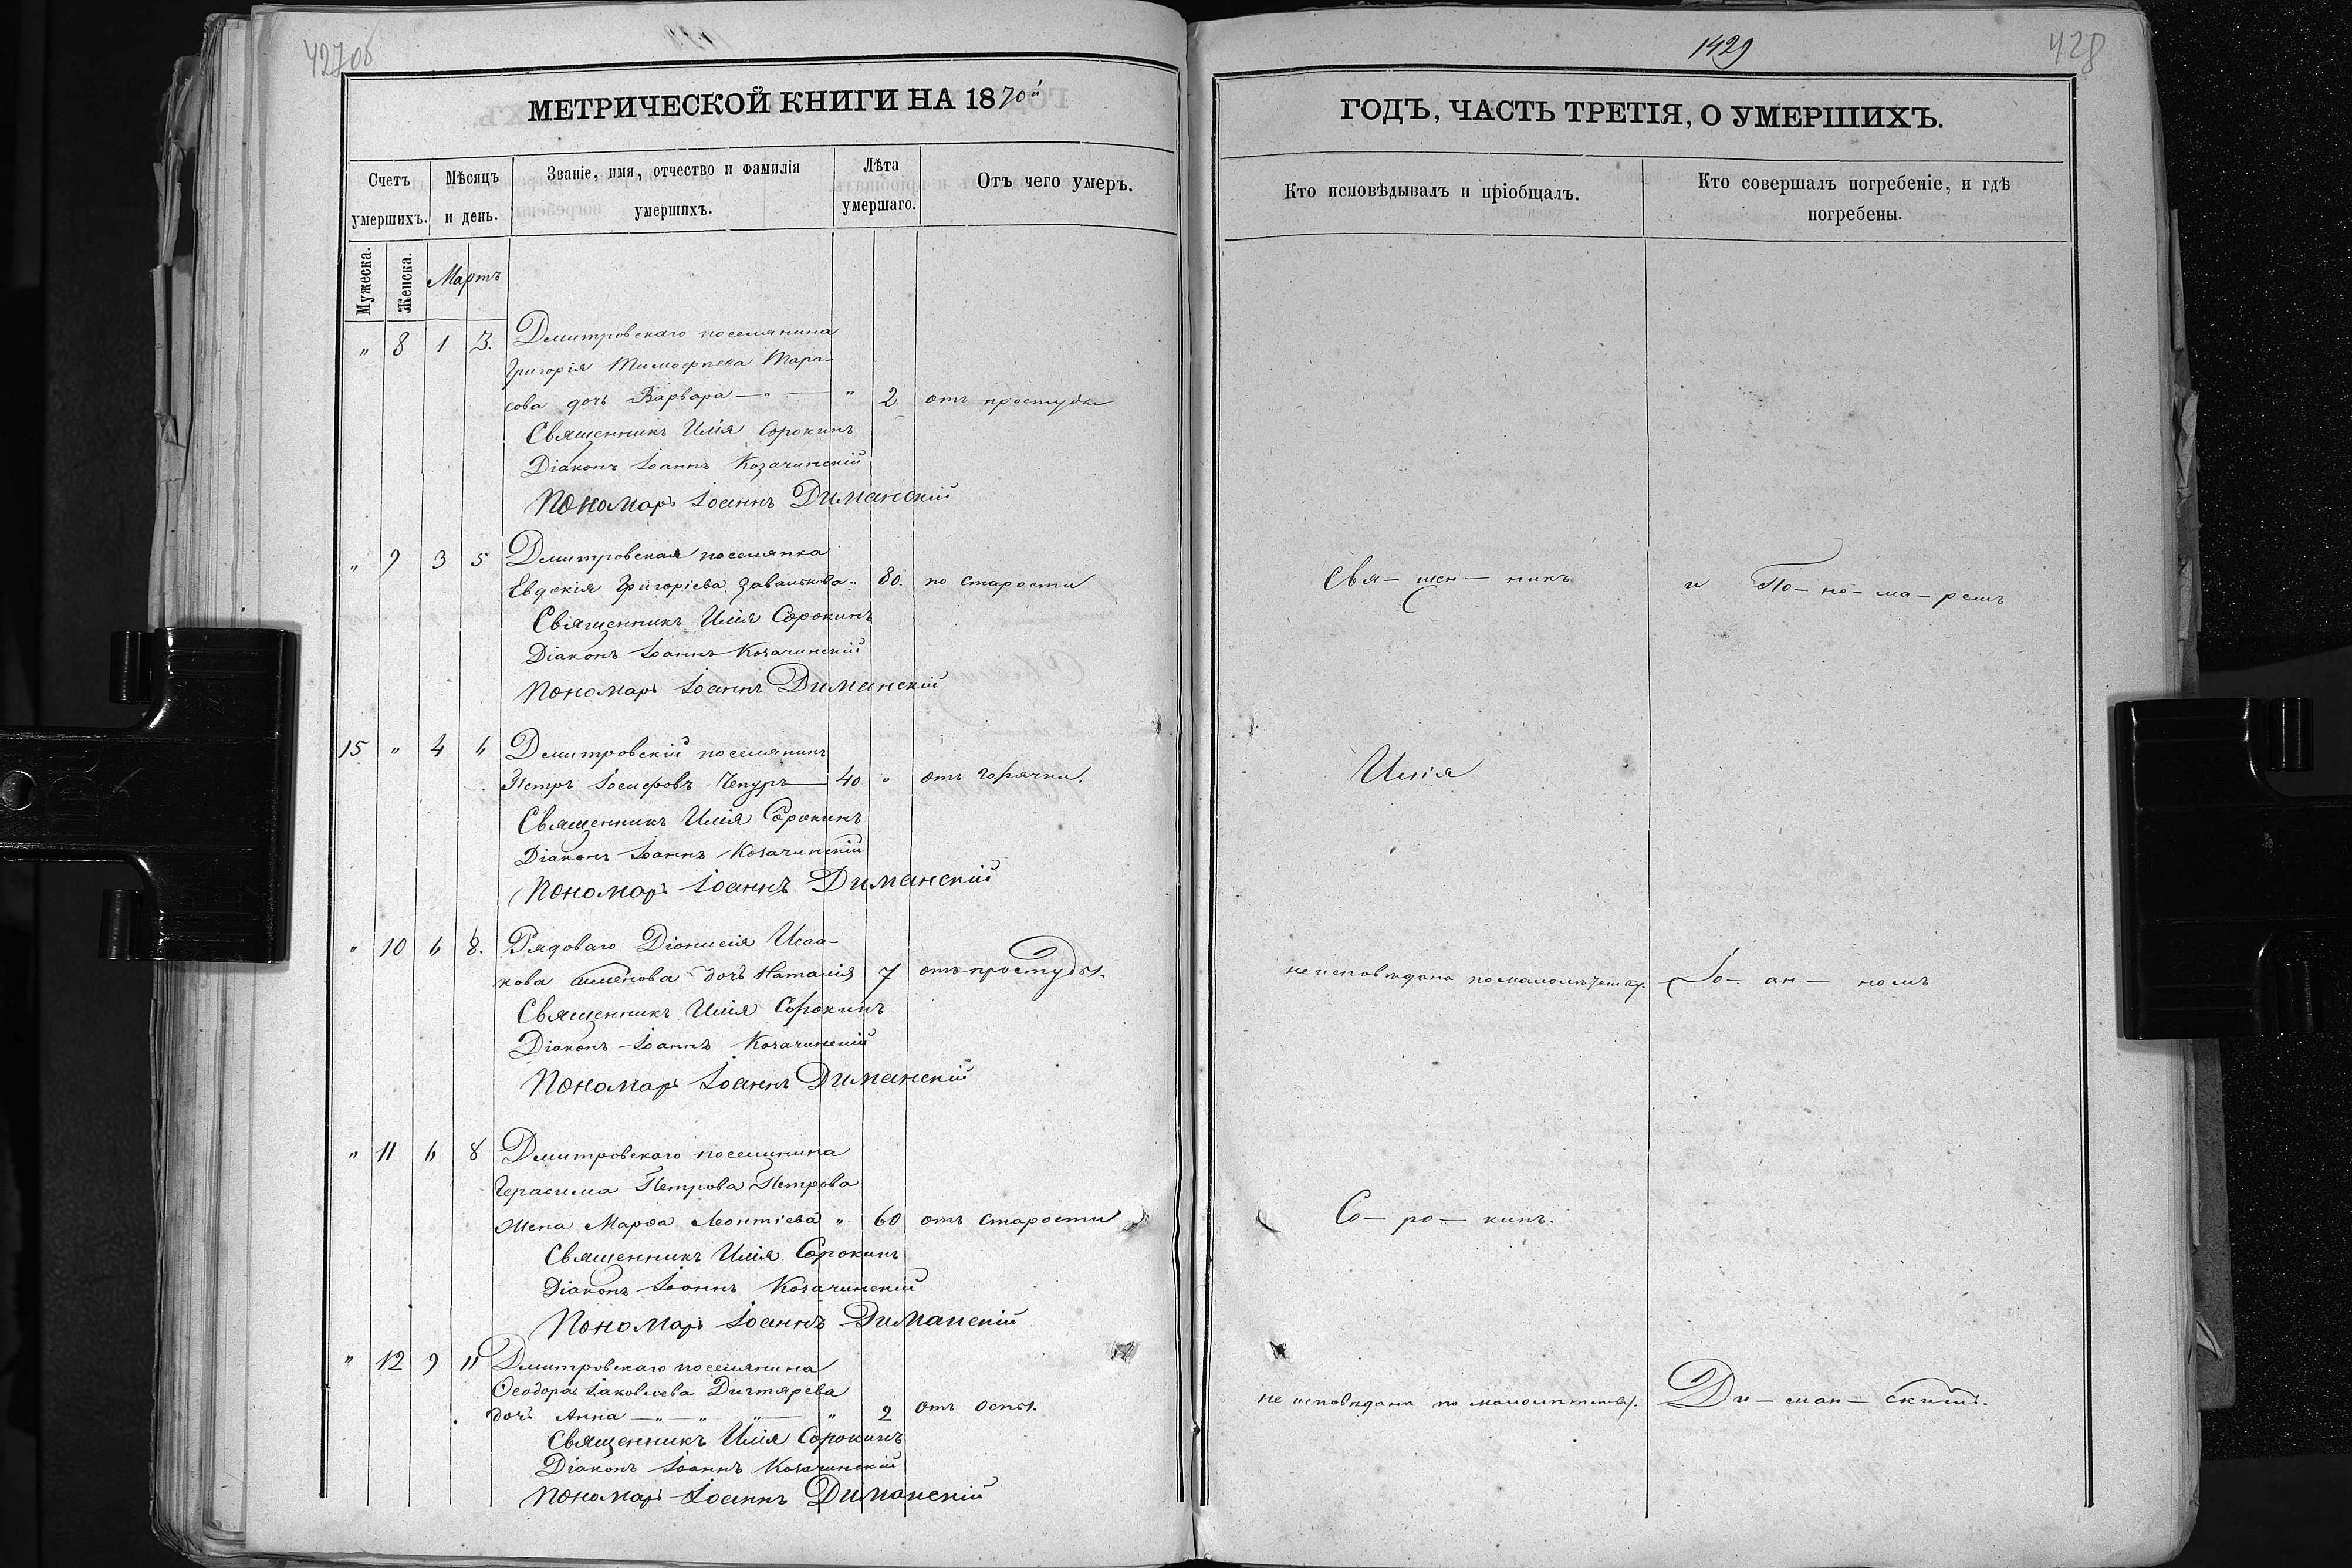 427об
МЕТРИЧЕСКОЙ КНИГИ НА 1870й
Счетъ умершихъ.
Мѣсяцъ и день.
Званіе, имя, отчество и фамилія умершихъ.
Лѣта умершаго.
Отъ чего умеръ.
Мужеска.
Женска.
Мартъ
" 8 1 3. Дмитровскаго поселянина
Григорія Тимофѣева Тара-
сова дочь Варвара — " — " 2 отъ простуды
Священникъ Илія Сорокинъ
Діаконъ Іоаннъ Козачинскій
Пономарь Іоаннъ Диманскій
" 9 3 5 Дмитровская поселянка
Евдокія Григоріева " 80. по старости
Священникъ Илія Сорокинъ
Діаконъ Іоаннъ Козачинскій
Пономарь Іоаннъ Диманскій
15 " 4 6 Дмитровскій поселянинъ
Петръ Іосифовъ Чепуръ — 40 " отъ горячки.
Священникъ Илія Сорокинъ
Діаконъ Іоаннъ Козачинскій
Пономарь Іоаннъ Диманскій
" 10 6 8. Рядоваго Діонисія Исаа-
кова дочь Наталія 7 отъ простуды.
Священникъ Илія Сорокинъ
Діаконъ Іоаннъ Козачинскій
Пономарь Іоаннъ Диманскій
" 11 6 8 Дмитровскаго поселянина
Герасима Петрова Петрова
жена Марфа Леонтіева " 60 отъ старости
Священникъ Илія Сорокинъ
Діаконъ Іоаннъ Козачинскій
Пономарь Іоаннъ Диманскій
" 12 9 11 Дмитровскаго поселянина
Ѳеодора Іаковлева Дигтярева
дочь Анна — " — " — " — " 2 отъ оспы.
Священникъ Илія Сорокинъ
Діаконъ Іоаннъ Козачинскій
Пономарь Іоаннъ Диманскій
1429
428
ГОДЪ, ЧАСТЬ ТРЕТІЯ, О УМЕРШИХЪ.
Кто исповѣдывалъ и пріобщалъ.
Кто совершалъ погребеніе, и гдѣ погребены.
Свя- щен- никъ и По- но- ма- ремъ
Илія
не исповѣдана по малолѣтству. Іо- ан- номъ
Со- ро- кинъ.
не исповѣдана по малолѣтству. Ди- ман- скимъ.